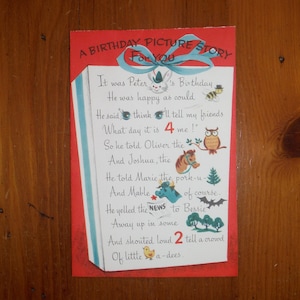 A BIRTHDAY PICTURE STORY
FOR YOU
It was Peter 's Birthday
He was happy as could
He said think I'll tell my friends
What day it is 4 me!!
So he told Oliver, the
And Joshua, the
He told Marie, the pork-u
And Mable of course
He yelled the NEWS to Bessie
Away up in some
And shouted loud 2 tell a crowd
Of little a-dees